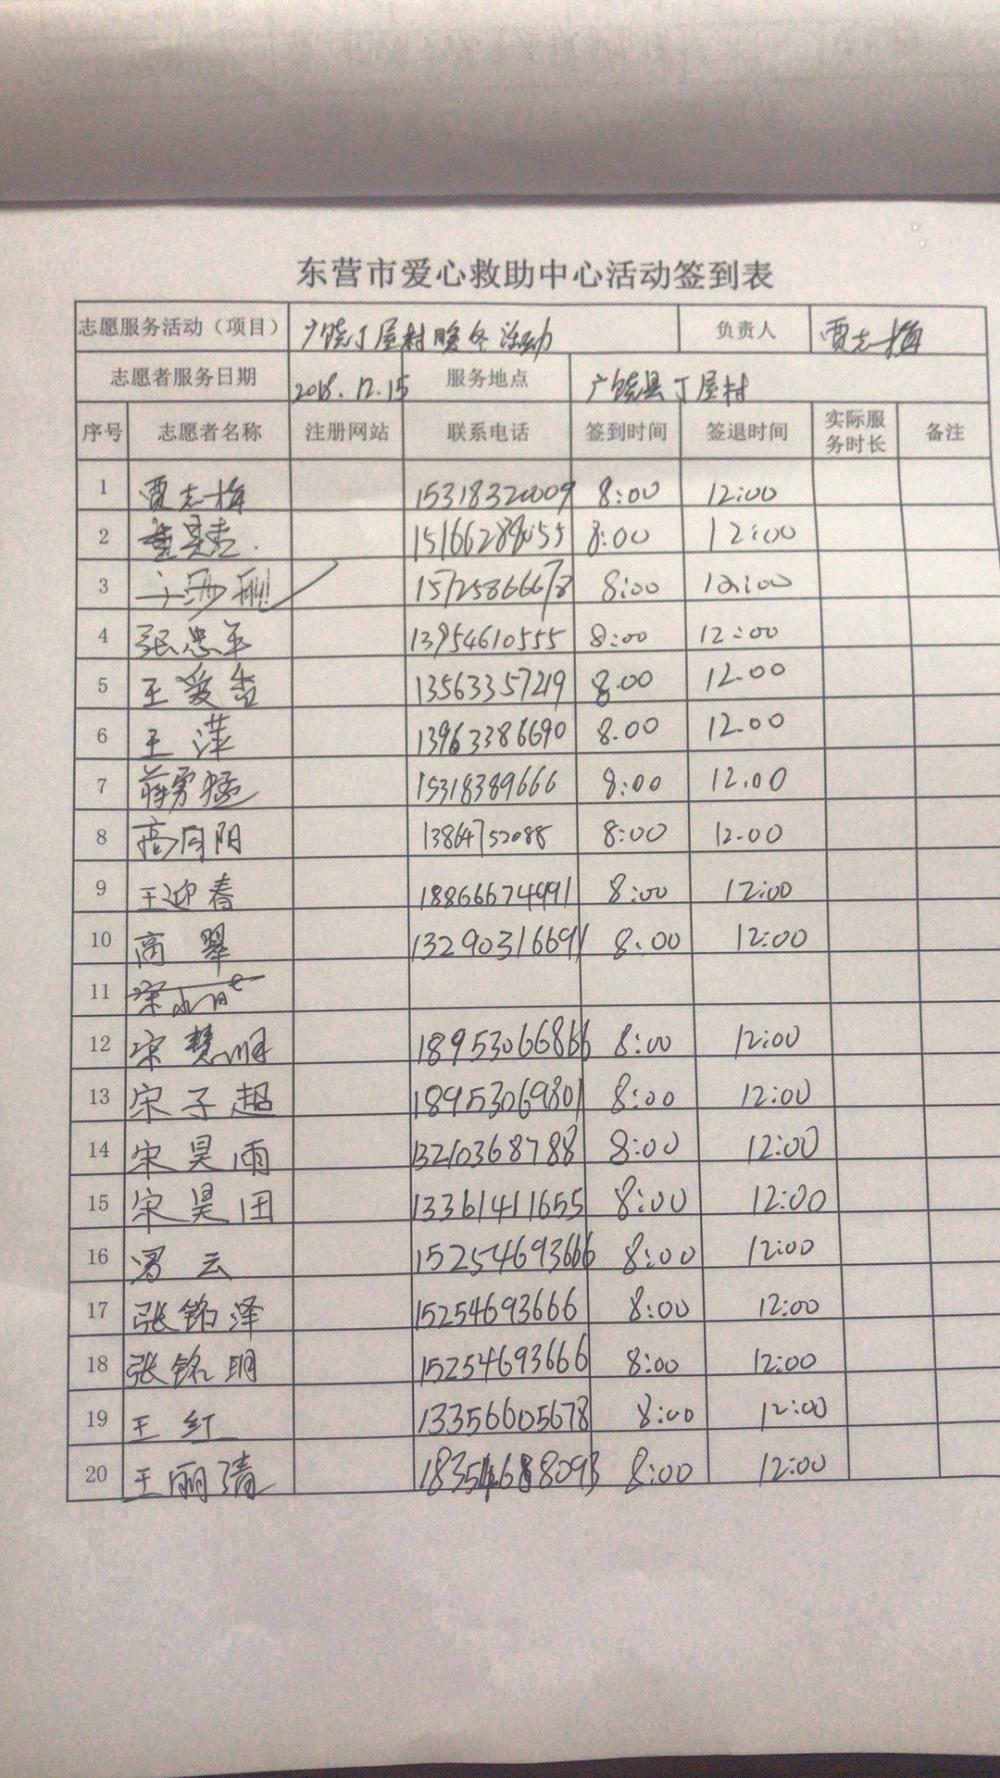 东营市爱心救助中心活动签到表
志愿服务活动（项目） 广饶丁屋村暖冬活动 负责人 贾志梅
志愿者服务日期 2018.12.15 服务地点 广饶县丁屋村
序号 志愿者名称 注册网站 联系电话 签到时间 签退时间 实际服务时长 备注
1 贾志梅 15318320009 8:00 12:00
2 8:00 12:00
3 8:00 12:00
4 张忠军 13954610555 8:00 12:00
5 王爱香 13563357219 8.00 12.00
6 王萍 13963386690 8.00 12.00
7 蒋勇猛 15318389666 8:00 12.00
8 高向阳 13864752088 8:00 12.00
9 王迎春 18866674991 8:00 12:00
10 商翠 13290316691 8.00 12:00
11
12 宋慧明 18953066866 8:00 12:00
13 宋子超 18953069801 8:00 12:00
14 宋昊雨 13210368788 8:00 12:00
15 宋昊田 13361411655 8:00 12:00
16 云 15254693666 8:00 12:00
17 张铭泽 15254693666 8:00 12:00
18 张铭玥 15254693666 8:00 12:00
19 王红 13356605678 8:00 12:00
20 王丽清 8:00 12:00